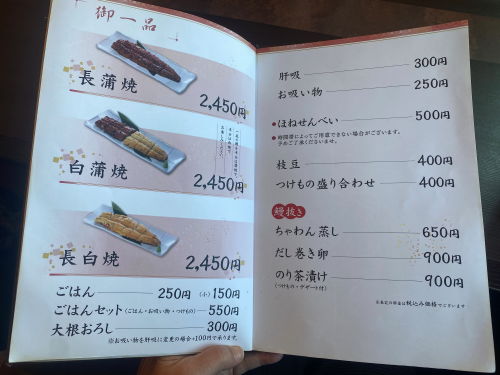 御一品
長蒲焼
2,450円
白蒲焼
2,450円
長白焼
2,450円
ごはん 250円 (小)150円
ごはんセット(ごはん・お吸い物・つけもの) 550円
大根おろし 300円
※お吸い物を肝吸に変更の場合+100円で承ります。
肝吸 300円
お吸い物 250円
●ほねせんべい 500円
●時間帯によってご用意できない場合がございます。
予めご了承くださいませ。
枝豆 400円
つけもの盛り合わせ 400円
鰻抜き
ちゃわん蒸し 650円
だし巻き卵 900円
のり茶漬け 900円
(つけもの・デザート付)
※表記の料金は税込み価格でございます